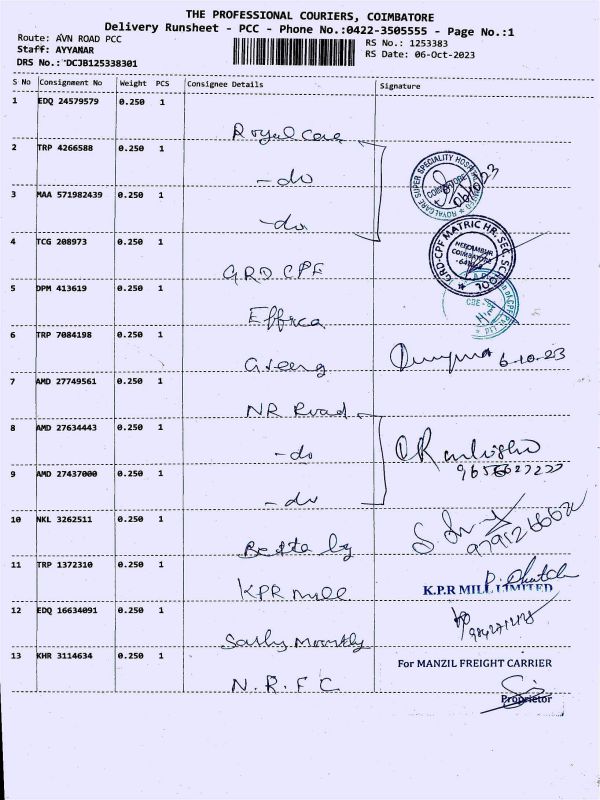 THE PROFESSIONAL COURIERS, COIMBATORE
Delivery Runsheet - PCC - Phone No.:0422-3505555 - Page No.:1
Route: AVN ROAD PCC
Staff: AYYANAR
DRS No.: DCJB125338301
RS No.: 1253383
RS Date: 06-Oct-2023
S No Consignment No Weight PCS Consignee Details Signature
1 EDQ 24579579 0.250 1
Royal Care
2 TRP 4266588 0.250 1
- do
3 MAA 571982439 0.250 1
- do
4 TCG 208973 0.250 1
GRD CPF
5 DPM 413619 0.250 1
6 TRP 7084198 0.250 1
6-10-23
7 AMD 27749561 0.250 1
NR Road
8 AMD 27634443 0.250 1
- do
9 AMD 27437000 0.250 1
- do
10 NKL 3262511 0.250 1
11 TRP 1372310 0.250 1
KPR mill
K.P.R MILL LIMITED
12 EDQ 16634091 0.250 1
13 KHR 3114634 0.250 1
N.R.F.C
For MANZIL FREIGHT CARRIER
Proprietor